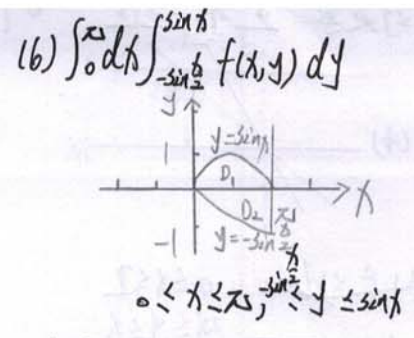 (6) ∫₀^π dx ∫_{-sin x/2}^{sin x} f(x,y) dy
y
y=sinx
1
D₁
x
D₂
π
-1
y=-sin x/2
0 ≤ x ≤ π, -sin x/2 ≤ y ≤ sinx